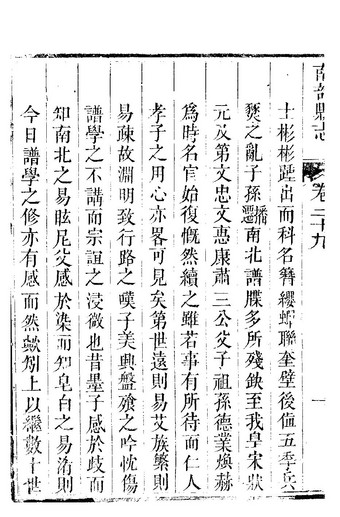 南部縣志 卷二十九 一
士彬彬踵出而科名簪纓蟬聯奎壁後値五季兵
燹之亂子孫播遷南北譜牒多所殘缺至我皇宋狀
元及第文忠文惠康肅三公父子祖孫德業煥赫
爲時名宦始復慨然續之雖若事有所待而仁人
孝子之用心亦畧可見矣第世遠則易艾族繁則
易疎故淵明致行路之嘆子美興盤飱之吟忱傷
譜學之不講而宗誼之浸微也昔墨子感於歧而
知南北之易眩尼父感於染而知皂白之易淆則
今日譜學之修亦有感而然歟矧上以繼數十世